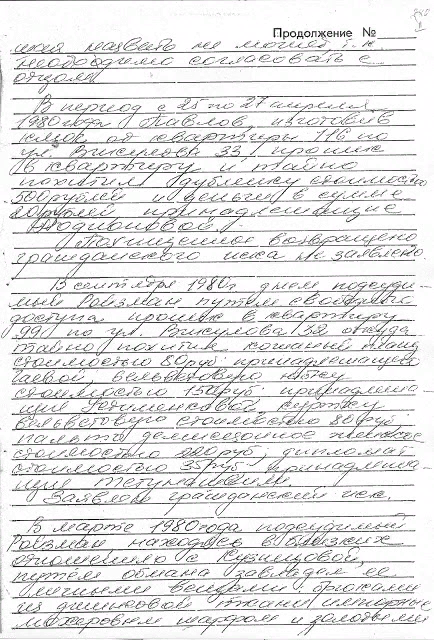 Продолжение №
назвать не может, т.к.
необходимо согласовать с
отцом
В период с 25 по 27 апреля
1980 года Павлов, изготовив
ключ от квартиры 116 по
ул. Викулова 33, проник
в квартиру и тайно
похитил дубленку стоимостью
500 рублей и деньги в сумме
20 рублей принадлежащие
Родионовой.
Похищенное возвращено
гражданского иска не заявлено.
В сентябре 1980 г днем подсуди-
мый Ройзман путем свободного
доступа проник в квартиру
99 по ул. Викулова 32 откуда
тайно похитил кожаный плащ
стоимостью 80 руб. принадлежащего
вельветовую юбку
стоимостью 150 руб. принадлежа-
щие куртку
вельветовую стоимостью 80 руб.
пальто демисезонное женское
стоимостью 220 руб, дипломат
стоимостью 35 руб. принадлежа-
щие
Заявлен гражданский иск.
В марте 1980 года подсудимый
Ройзман находясь в близких
отношениях с Кузнецовой,
путем обмана завладел ее
личными вещами: брюками
из джинсовой ткани импортные
мохеровым шарфом и золотыми